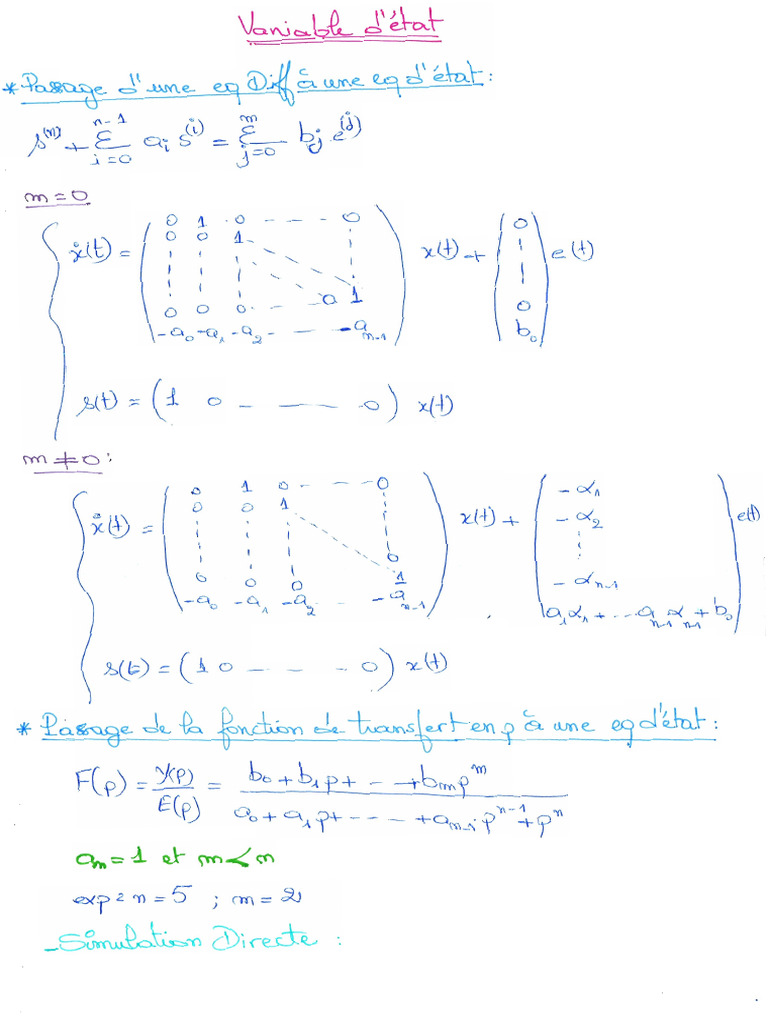 Variable d'état
* Passage d'une eq Diff à une eq d'état :
s^(n) + Σ_{i=0}^{n-1} a_i s^(i) = Σ_{j=0}^{m} b_j e^(j)
m = 0
ẋ(t) = ( 0 1 0 - - - 0 ; 0 0 1 ; 0 1 ; 0 0 0 ; -a_0 -a_1 -a_2 - - - -a_{n-1} ) x(t) + ( 0 ; 0 ; b_0 ) e(t)
s(t) = ( 1 0 - - - 0 ) x(t)
m ≠ 0 :
ẋ(t) = ( 0 1 0 - - - 0 ; 0 0 1 ; 0 ; 0 0 0 1 ; -a_0 -a_1 -a_2 - - -a_{n-1} ) x(t) + ( -α_1 ; -α_2 ; -α_{n-1} ; a_1 α_1 + - - - a_{n-1} α_{n-1} + b_0 ) e(t)
s(t) = ( 1 0 - - - - 0 ) x(t)
* Passage de la fonction de transfert en p à une eq d'état :
F(p) = Y(p)/E(p) = (b_0 + b_1 p + - - - + b_m p^m) / (a_0 + a_1 p + - - - - + a_{n-1} p^{n-1} + p^n)
a_n = 1 et m < n
exp : n = 5 ; m = 2
- Simulation Directe :